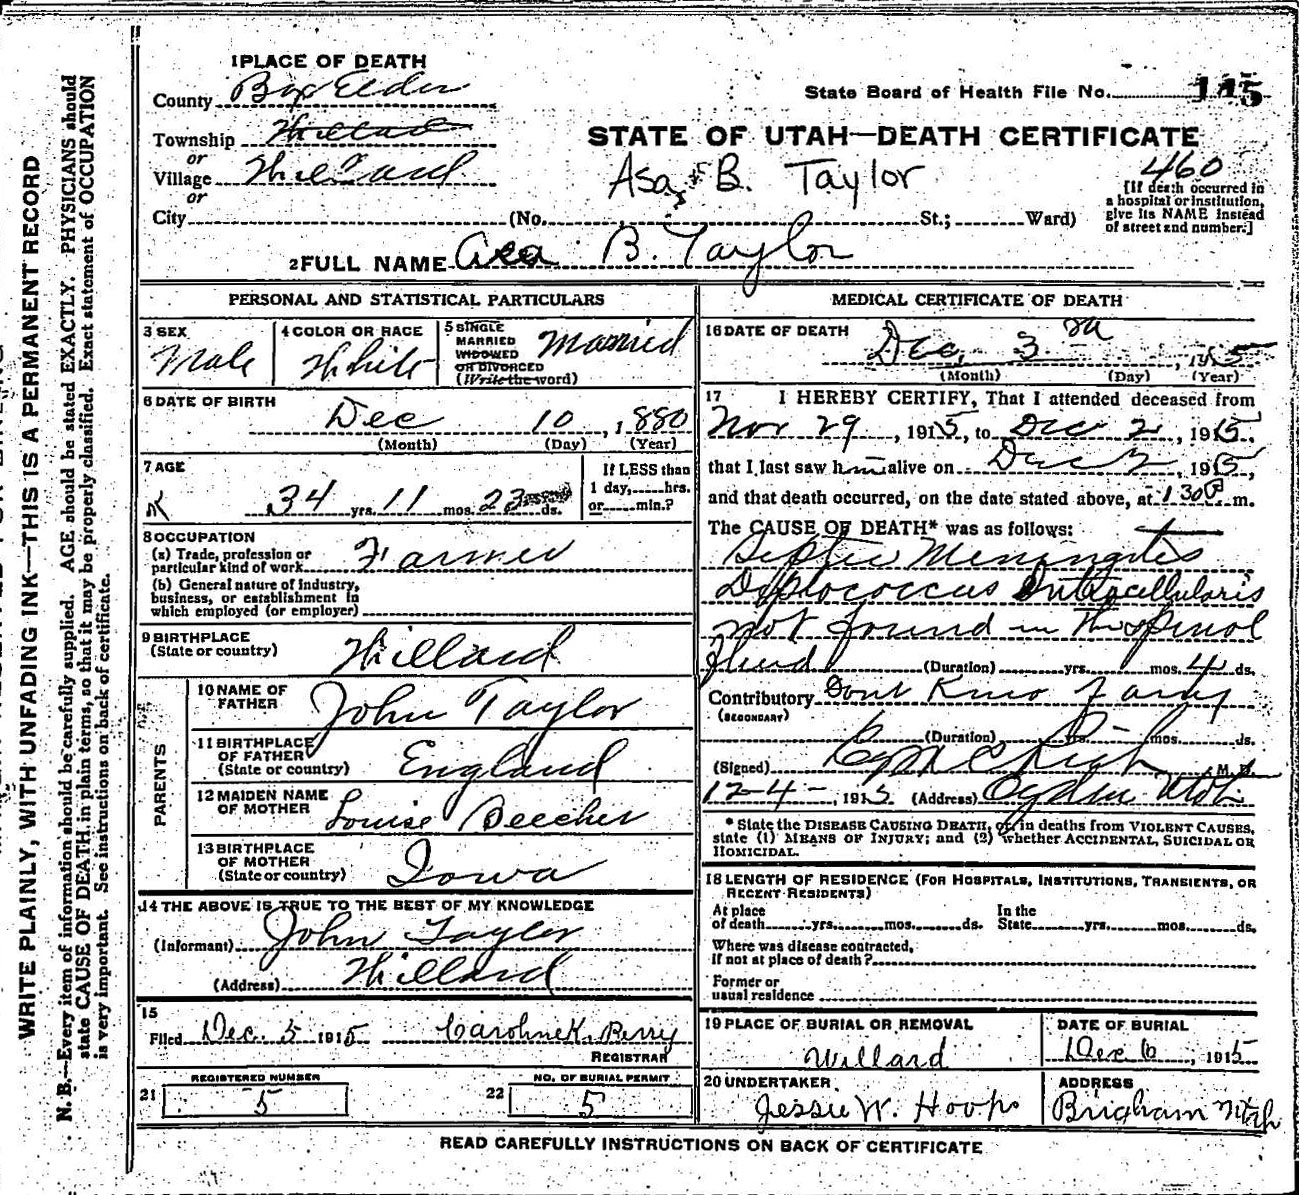 WRITE PLAINLY, WITH UNFADING INK—THIS IS A PERMANENT RECORD
N. B.—Every item of information should be carefully supplied. AGE should be stated EXACTLY. PHYSICIANS should
state CAUSE OF DEATH in plain terms, so that it may be properly classified. Exact statement of OCCUPATION
is very important. See instructions on back of certificate.
1 PLACE OF DEATH
County Box Elder
State Board of Health File No. 115
STATE OF UTAH—DEATH CERTIFICATE
Township Willard
or
Village Willard
or
Asa B. Taylor
460
[If death occurred in
a hospital or institution,
give its NAME instead
of street and number.]
City (No. St.; Ward)
2 FULL NAME Asa B. Taylor
PERSONAL AND STATISTICAL PARTICULARS
3 SEX
Male
4 COLOR OR RACE
White
5 SINGLE
MARRIED
WIDOWED
OR DIVORCED
(Write the word)
Married
6 DATE OF BIRTH
Dec 10, 1880
(Month) (Day) (Year)
7 AGE
34 yrs. 11 mos. 23 ds.
If LESS than
1 day, hrs.
or min.?
8 OCCUPATION
(a) Trade, profession or
particular kind of work Farmer
(b) General nature of industry,
business, or establishment in
which employed (or employer)
9 BIRTHPLACE
(State or country) Willard
PARENTS
10 NAME OF
FATHER John Taylor
11 BIRTHPLACE
OF FATHER
(State or country) England
12 MAIDEN NAME
OF MOTHER Louise Beecher
13 BIRTHPLACE
OF MOTHER
(State or country) Iowa
14 THE ABOVE IS TRUE TO THE BEST OF MY KNOWLEDGE
(Informant) John Taylor
(Address) Willard
15
Filed Dec. 5 1915 Caroline K. Perry
REGISTRAR
21 REGISTERED NUMBER
5
22 NO. OF BURIAL PERMIT
5
MEDICAL CERTIFICATE OF DEATH
16 DATE OF DEATH
Dec, 3 rd, 1915
(Month) (Day) (Year)
17 I HEREBY CERTIFY, That I attended deceased from
Nov 29, 1915, to Dec 2, 1915,
that I last saw him alive on Dec 2, 1915,
and that death occurred, on the date stated above, at 130 P m.
The CAUSE OF DEATH* was as follows:
Septic Meningitis
Dyplococcus Intracellularis
not found in the spinal
fluid (Duration) yrs. mos. 4 ds.
Contributory Dont Know
(SECONDARY)
(Duration) yrs. mos. ds.
(Signed) M. D.
12-4-, 1915 (Address) Ogden Utah
* State the DISEASE CAUSING DEATH, or in deaths from VIOLENT CAUSES,
state (1) MEANS OF INJURY; and (2) whether ACCIDENTAL, SUICIDAL OR
HOMICIDAL.
18 LENGTH OF RESIDENCE (FOR HOSPITALS, INSTITUTIONS, TRANSIENTS, OR
RECENT RESIDENTS)
At place
of death yrs. mos. ds.
In the
State yrs. mos. ds.
Where was disease contracted,
If not at place of death?
Former or
usual residence
19 PLACE OF BURIAL OR REMOVAL
Willard
DATE OF BURIAL
Dec 6, 1915
20 UNDERTAKER
Jessie W. Hoops
ADDRESS
Brigham Utah
READ CAREFULLY INSTRUCTIONS ON BACK OF CERTIFICATE